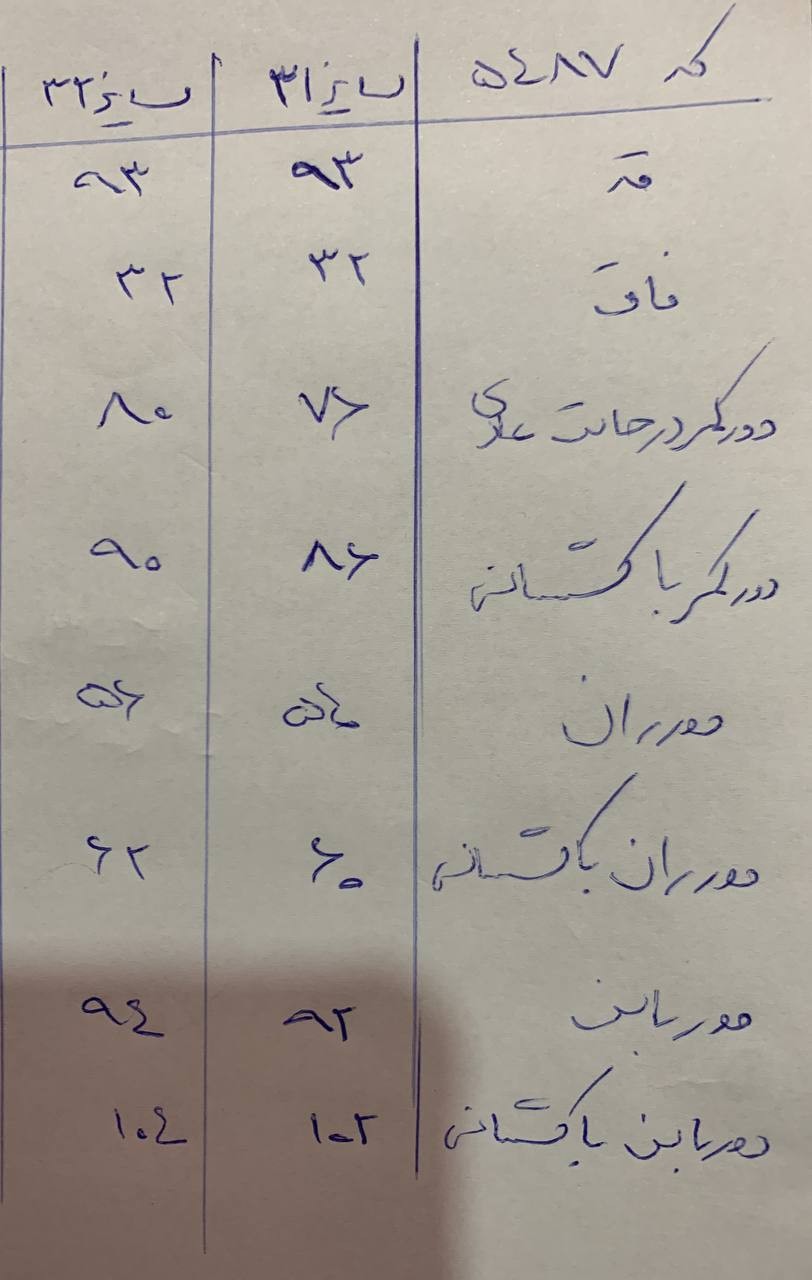 کد ۵۴۸۷ سایز ۳۱ سایز ۳۲
قد ۹۳ ۹۳
فاق ۳۲ ۳۲
دور کمر در حالت عادی ۷۶ ۸۰
دور کمر با کشسانی ۸۶ ۹۰
دور ران ۵۴ ۵۶
دور ران با کشسانی ۶۰ ۶۲
دور باسن ۹۲ ۹۴
دور باسن با کشسانی ۱۰۲ ۱۰۴